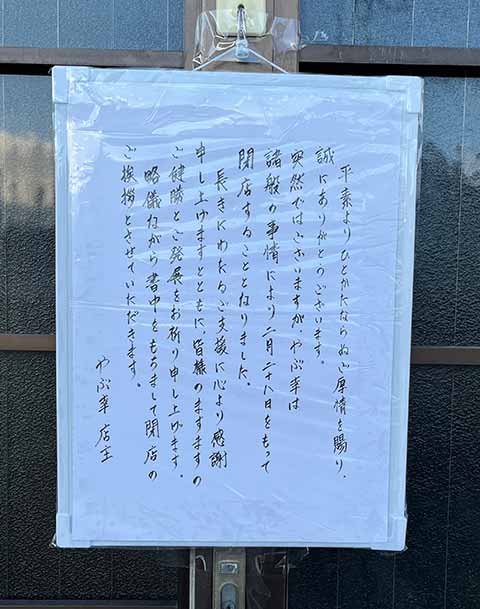 平素よりひとかたならぬご厚情を賜り、
誠にありがとうございます。
突然ではございますが、やぶ幸は
諸般の事情により二月二十八日をもって
閉店することとなりました。
長きにわたるご支援に心より感謝
申し上げますとともに皆様のますますの
ご健勝とご発展をお祈り申し上げます。
略儀ながら書中をもちまして閉店の
ご挨拶とさせていただきます。
やぶ幸 店主